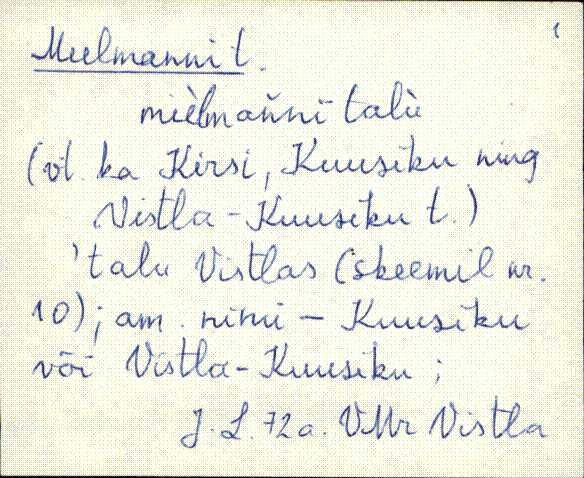 1
Meelmanni t.
mièlmaǹnī talù
(vt. ka Kirsi, Kuusiku ning
Vistla-Kuusiku t.)
'talu Vistlas (skeemil nr.
10); am. nimi - Kuusiku
või Vistla-Kuusiku;
J. L. 72 a. VMr Vistla